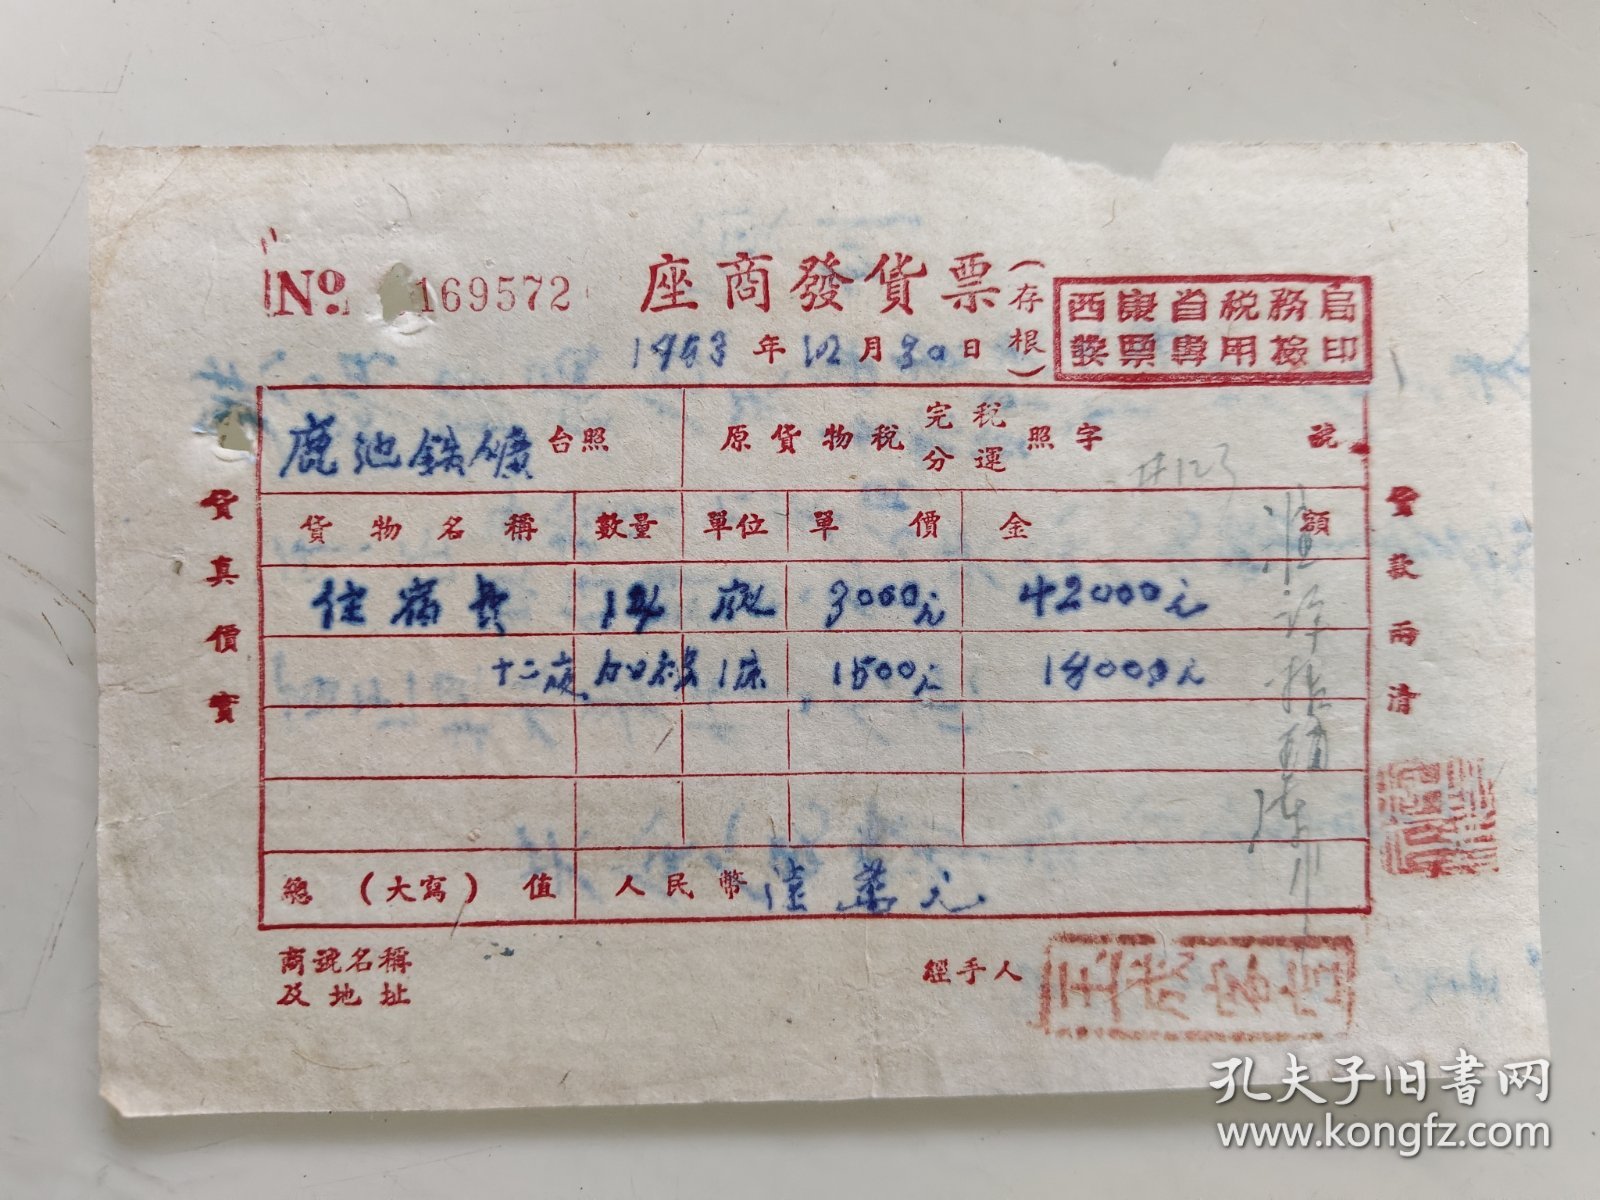 No 169572
座商發貨票(存根)
西康省稅務局
發票專用檢印
1953年12月30日
鹿池鉄礦台照
原貨物稅完稅分運照字 號
#123
貨物名稱 數量 單位 單價 金額
住宿費 14 3000元 42000元
十二夜 加被 1床 1500元 18000元
總(大寫)值 人民幣 陸萬元
商號名稱及地址
經手人
貨真價實
貨款兩清
孔夫子旧書网
www.kongfz.com